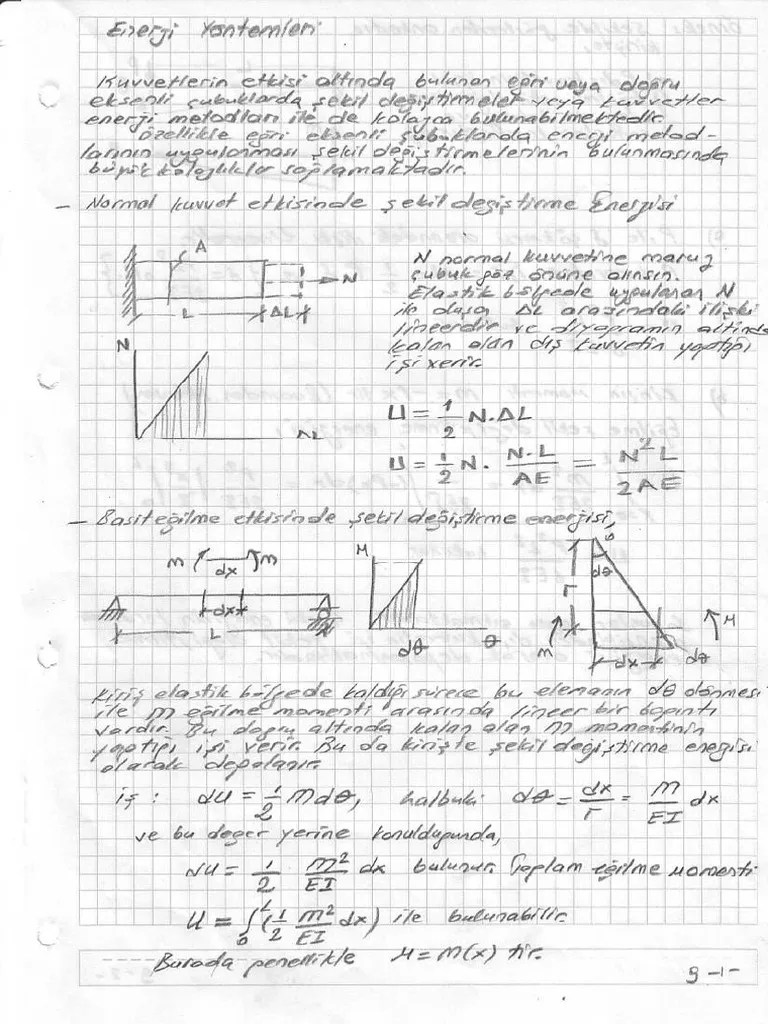 Enerji Yöntemleri
Kuvvetlerin etkisi altında bulunan eğri veya doğru
eksenli çubuklarda şekil değiştirmeler veya kuvvetler
enerji metodları ile de kolayca bulunabilmektedir.
özellikle eğri eksenli çubuklarda enerji metod-
larının uygulanması şekil değiştirmelerinin bulunmasında
büyük kolaylıklar sağlamaktadır.
- Normal kuvvet etkisinde şekil değiştirme Enerjisi
A
N
L
ΔL
N normal kuvvetine maruz
çubuk göz önüne alınsın.
Elastik bölgede uygulanan N
ile oluşan ΔL arasındaki ilişki
lineerdir ve diyagramın altında
kalan alan dış kuvvetin yaptığı
işi verir.
N
ΔL
U = 1/2 N.ΔL
U = 1/2 N. N.L/AE = N²L/2AE
- Basit eğilme etkisinde şekil değiştirme enerjisi,
M dx M
dx
L
M
dθ θ
dθ
r
M
M
dx dθ
Kiriş elastik bölgede kaldığı sürece bu elemanın dθ dönmesi
ile M eğilme momenti arasında lineer bir bağıntı
vardır. Bu doğru altında kalan alan M momentinin
yaptığı işi verir. Bu da kirişte şekil değiştirme enerjisi
olarak depolanır.
iş : dU = 1/2 M dθ, halbuki dθ = dx/r = M/EI dx
ve bu değer yerine konulduğunda,
dU = 1/2 M²/EI dx bulunur. Toplam eğilme momenti
U = ∫₀ᴸ (1/2 M²/EI dx) ile bulunabilir.
Burada genellikle M = M(x) tir.
9-1-